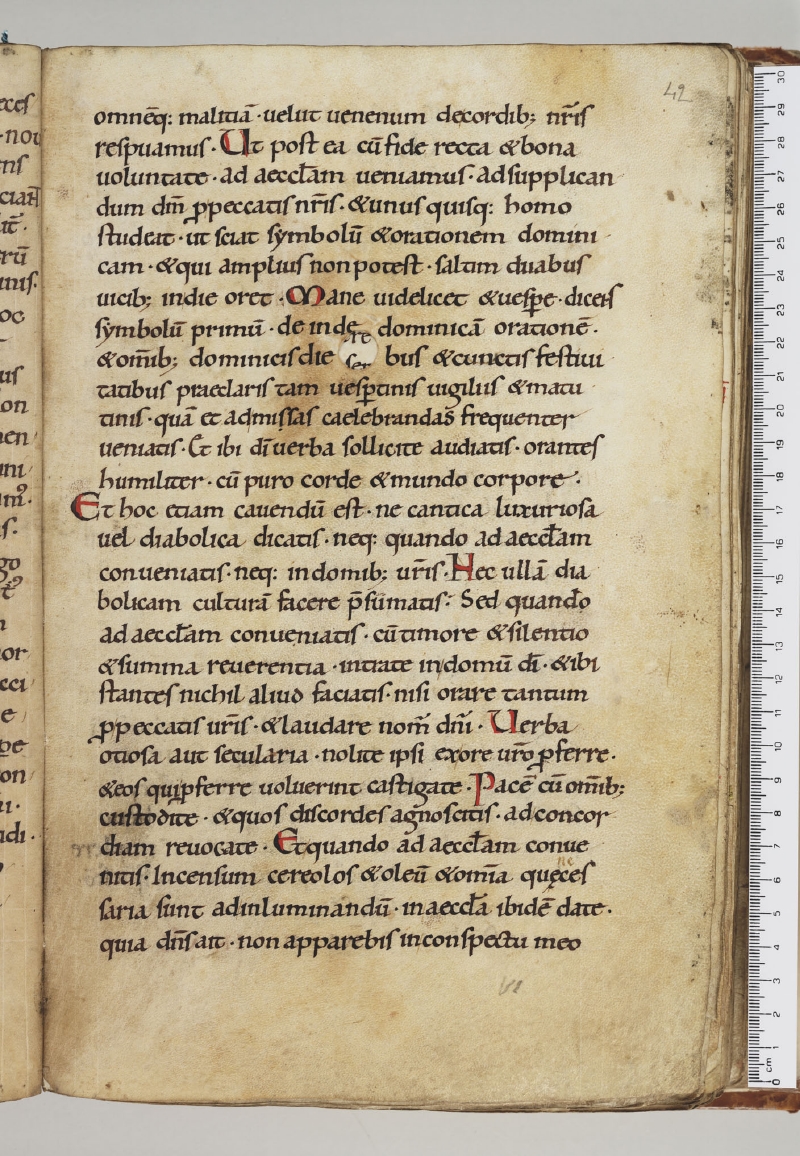 42
omnēq: malitiā · uelut uenenum decordib; nr̄is
respuamus · Ut post ea cū fide recta &bona
uoluntate · ad aeccl̄am ueniamus · adsupplican
dum dn̄m ꝓpeccatis nr̄is · &unus quisq: homo
studeat · ut sciat symbolū &orationem domini
cam · &qui amplius non potest · saltim duabus
uicib; indie oret · Mane uidelicet &uesꝑe · dicens
symbolū primū · deinde dominicā orationē ·
&om̄ib; dominicis die bus &cunctis festiui
tatibus praeclaris tam uesꝑtinis uigiliis &matu
tinis · quā et admissas caelebrandas frequenter
ueniatis · Et ibi dī uerba sollicite audiatis · orantes
humiliter · cū puro corde &mundo corpore ·
Et hoc etiam cauendū est · ne cantica luxuriosa
uel diabolica dicatis · neq: quando ad aeccl̄am
conueniatis · neq: indomib; ur̄is · Nec ullā dia
bolicam culturā facere p̄sumatis · Sed quando
ad aeccl̄am conueniatis · cū timore &silentio
&summa reuerentia · intrate in domū dī · &ibi
stantes nichil aliud faciatis · nisi orare tantum
ꝓpeccatis ur̄is · &laudare nom̄ dn̄i · Uerba
otiosa aut secularia · nolite ipsi exore ur̄o ꝓferre ·
&eos qui ꝓferre uoluerint castigate · Pacē cū om̄ib;
custodite · &quos discordes agnoscitis · adconcor
diam reuocate · Et quando ad aeccl̄am conue
nitis · Incensum cereolos &oleū &om̄ia quęces
saria sunt adinluminandū · inaeccl̄a ibidē date ·
quia dn̄s ait · non apparebis inconspectu meo